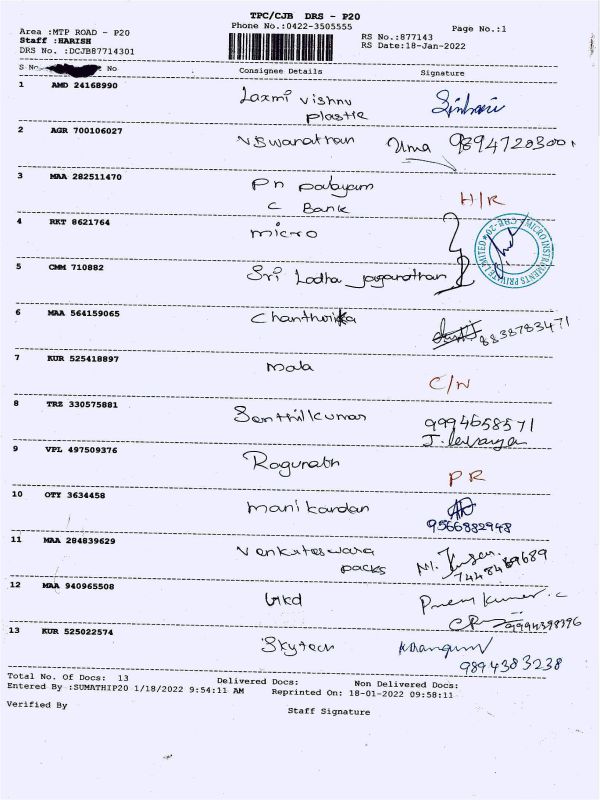 TPC/CJB DRS - P20
Phone No.:0422-3505555
Page No.:1
Area :MTP ROAD - P20
Staff :HARISH
DRS No. :DCJB87714301
RS No.:877143
RS Date:18-Jan-2022
S No No Consignee Details Signature
1 AMD 24168990 Laxmi Vishnu
plastic
2 AGR 700106027 Uma 9894720300
3 MAA 282511470 H/R
C Bank
4 RKT 8621764 micro
MICRO INSTRUMENTS PRIVATE LIMITED
5 CMM 710882 Sri Ladha jaganathan
6 MAA 564159065 8838783471
7 KUR 525418897 mala C/N
8 TRZ 330575881 Senthilkumar 9994658571
9 VPL 497509376 Ragunath PR
10 OTY 3634458 manikandan
9566882948
11 MAA 284839629 Venkateswara
packs
12 MAA 940965508 Prem kumar.c
13 KUR 525022574 Skytech
9894383238
Total No. Of Docs: 13 Delivered Docs: Non Delivered Docs:
Entered By :SUMATHIP20 1/18/2022 9:54:11 AM Reprinted On: 18-01-2022 09:58:11
Verified By
Staff Signature